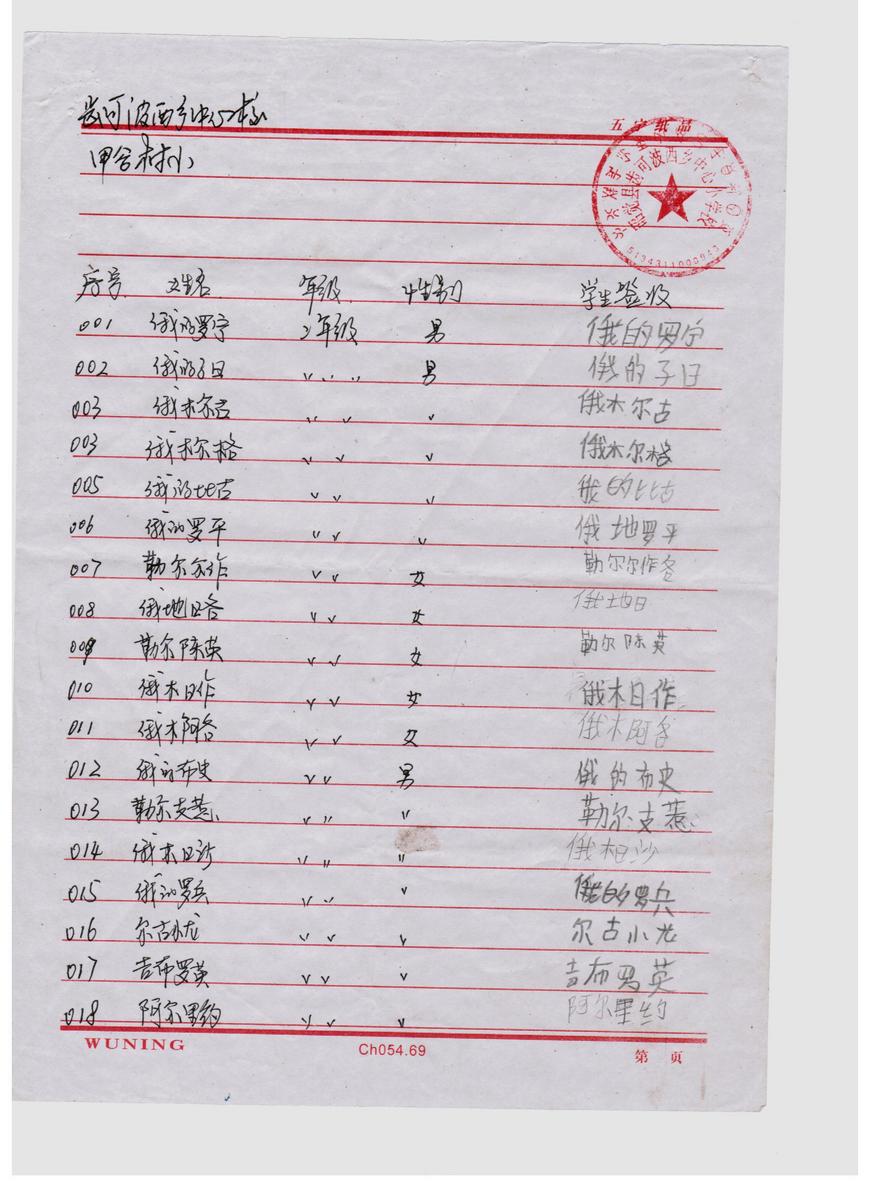 齿可波西乡中心校
五宁纸品
甲谷村小
昭觉县齿可波西乡中心小学校
5134311000943
序号 姓名 年级 性别 学生签收
001 俄的罗宁 2年级 男 俄的罗宁
002 俄的子日 〃 〃 男 俄的子日
003 俄木尔古 〃 〃 〃 俄木尔古
003 俄木尔格 〃 〃 〃 俄木尔格
005 俄的比古 〃 〃 〃 俄的比古
006 俄的罗平 〃 〃 〃 俄地罗平
007 勒尔尔作 〃 〃 女 勒尔尔作各
008 俄地日各 〃 〃 女 俄地日
009 勒尔陈英 〃 〃 女 勒尔陈英
010 俄木日作 〃 〃 女 俄木日作
011 俄木阿各 〃 〃 女 俄木阿各
012 俄的布史 〃 〃 男 俄的布史
013 勒尔支惹 〃 〃 〃 勒尔支惹
014 俄木日沙 〃 〃 〃 俄木日沙
015 俄的罗兵 〃 〃 〃 俄的罗兵
016 尔古小龙 〃 〃 〃 尔古小龙
017 吉布罗英 〃 〃 〃 吉布罗英
018 阿尔里约 〃 〃 〃 阿尔里约
WUNING Ch054.69 第 页